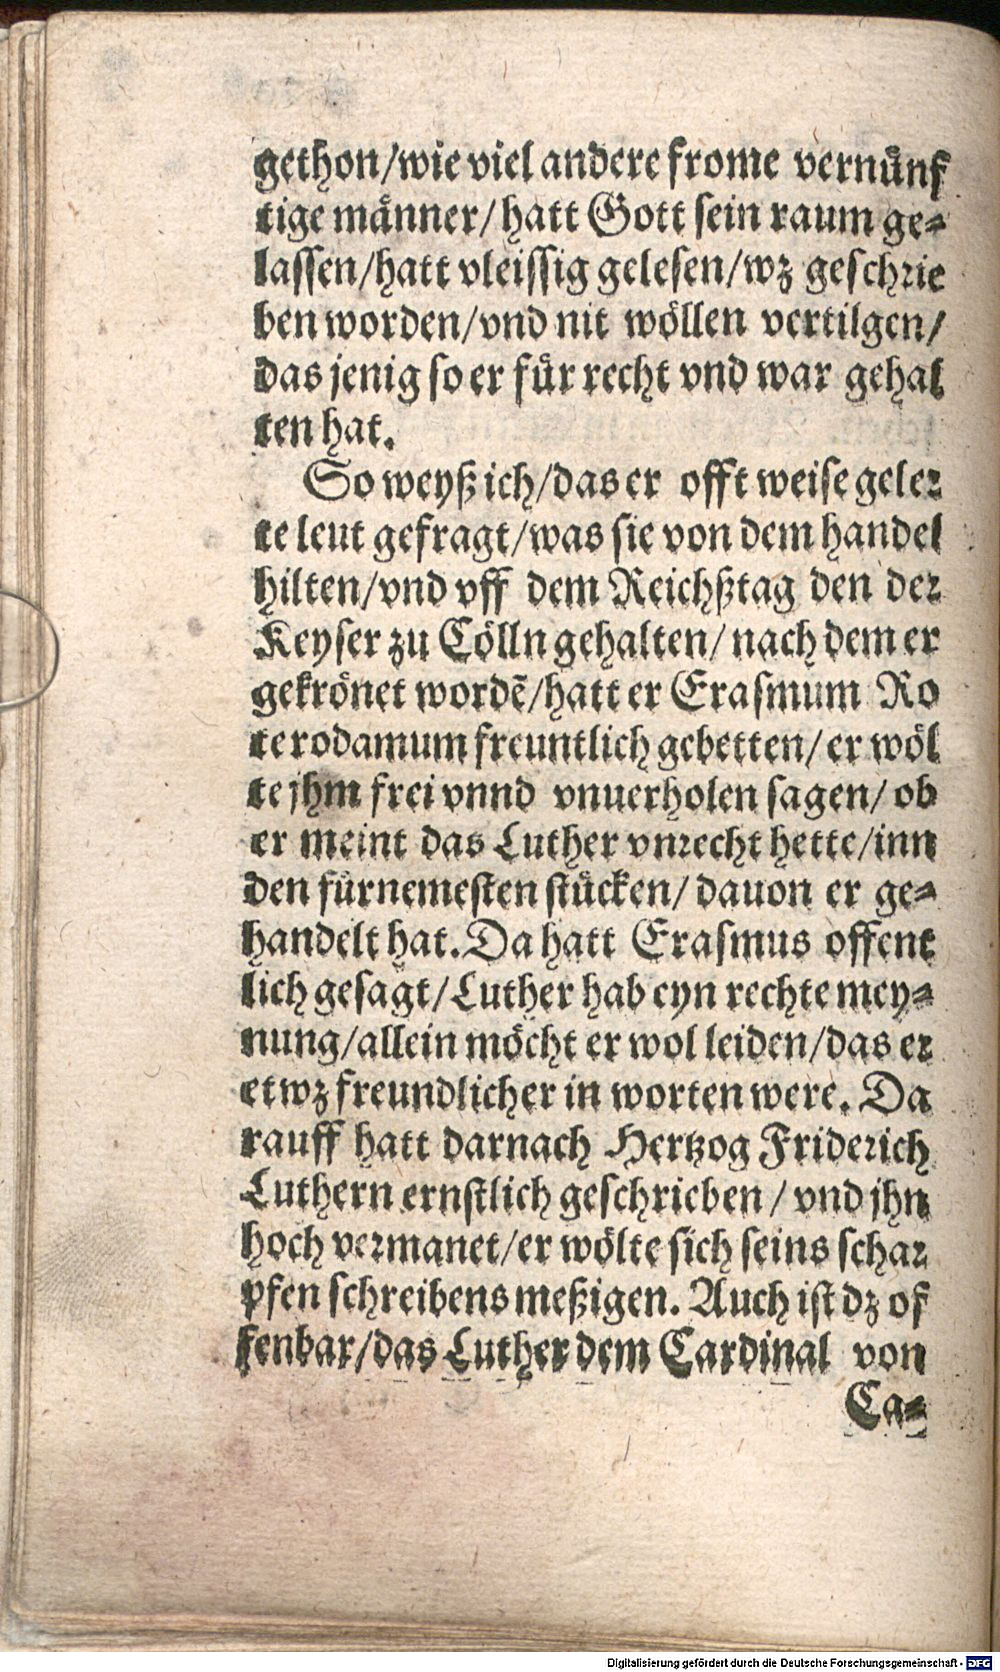 gethon/wie viel andere frome vernünf
tige männer/ hatt Gott sein raum ge⸗
lassen/hatt vleissig gelesen/wz geschrie
ben worden/vnd nit wöllen vertilgen/
das jenig so er für recht vnd war gehal
ten hat.
So weyß ich/das er offt weise geler
te leut gefragt/was sie von dem handel
hilten/vnd vff dem Reichßtag den der
Keyser zu Cölln gehalten/ nach dem er
gekrönet wordẽ/hatt er Erasmum Ro
terodamum freuntlich gebetten/ er wöl
te jhm frei vnnd vnuerholen sagen/ ob
er meint das Luther vnrecht hette/inn
den fürnemesten stücken/ dauon er ge⸗
handelt hat. Da hatt Erasmus offent
lich gesagt/Luther hab eyn rechte mey⸗
nung/allein möcht er wol leiden/das er
etwz freundlicher in worten were. Da
rauff hatt darnach Hertzog Friderich
Luthern ernstlich geschrieben / vnd jhn
hoch vermanet/er wölte sich seins schar
pfen schreibens meßigen. Auch ist dz of
fenbar/das Luther dem Cardinal von
Ca⸗
Digitalisierung gefördert durch die Deutsche Forschungsgemeinschaft - DFG